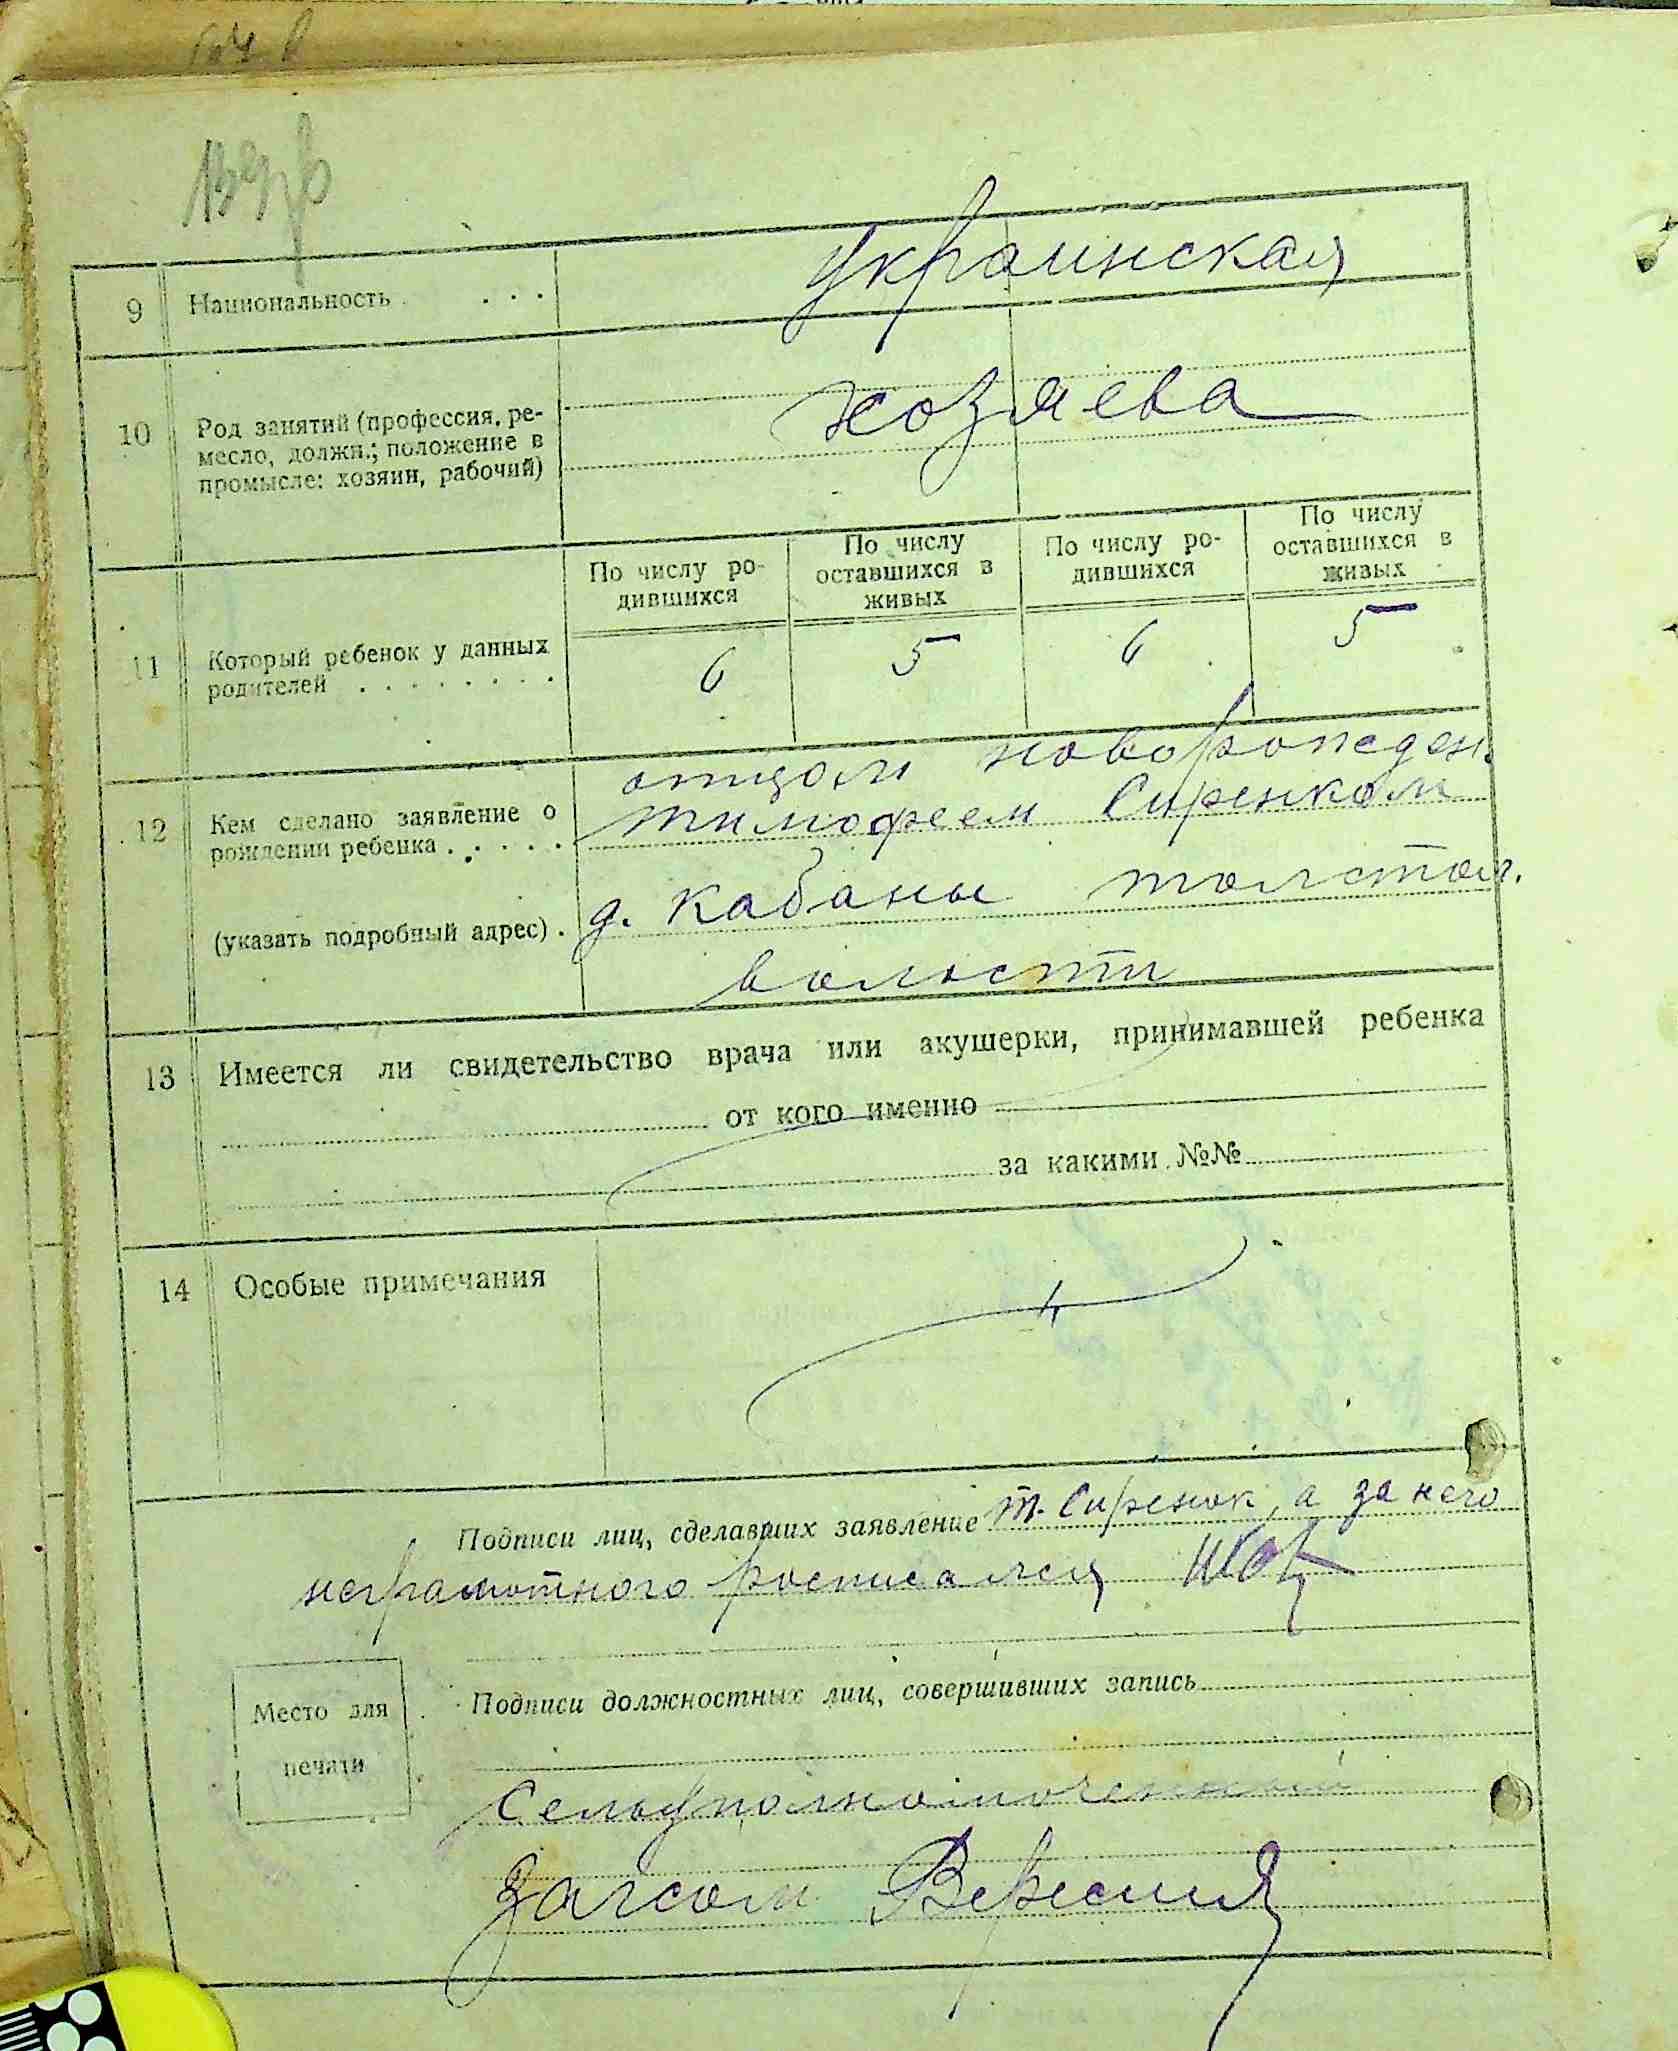 9 Национальность . . . украинская
10 Род занятий (профессия, ре-
месло, должн.; положение в
промысле: хозяин, рабочий)
хозяева
По числу ро-
дившихся
По числу
оставшихся в
живых
По числу ро-
дившихся
По числу
оставшихся в
живых
11 Который ребенок у данных
родителей . . . . . . . .
6 5 6 5
12 Кем сделано заявление о
рождении ребенка . . . . .
отцом новорожден.
Тимофеем Сиренком
(указать подробный адрес) . д. Кабаны толстол.
волости
13 Имеется ли свидетельство врача или акушерки, принимавшей ребенка
от кого именно
за какими №№
14 Особые примечания
Подписи лиц, сделавших заявление Т. Сиренок, а за него
неграмотного росписался
Место для
печати
Подписи должностных лиц, совершивших запись
Сельуполномоченный
Загсом